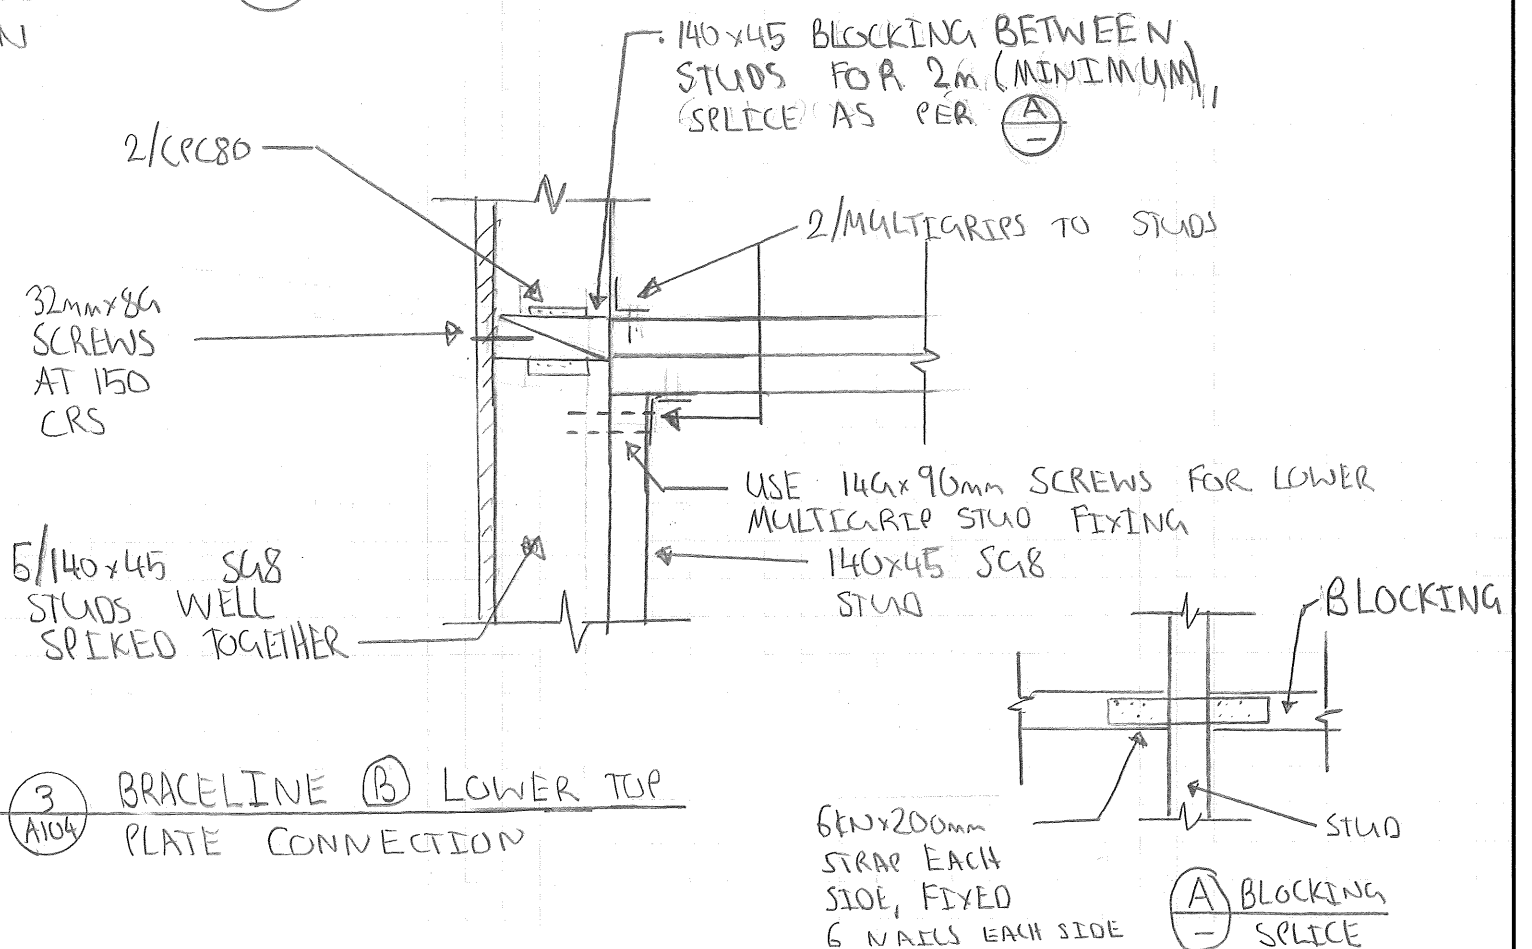 N
140x45 BLOCKING BETWEEN
STUDS FOR 2m (MINIMUM),
(SPLICE) AS PER A
–
2/CPC80
2/MULTIGRIPS TO STUDS
32mmx8G
SCREWS
AT 150
CRS
USE 14Gx90mm SCREWS FOR LOWER
MULTIGRIP STUD FIXING
140x45 SG8
STUD
5/140x45 SG8
STUDS WELL
SPIKED TOGETHER
BLOCKING
3 BRACELINE B LOWER TOP
A104 PLATE CONNECTION
6kNx200mm
STRAP EACH
SIDE, FIXED
6 NAILS EACH SIDE
STUD
A BLOCKING
– SPLICE